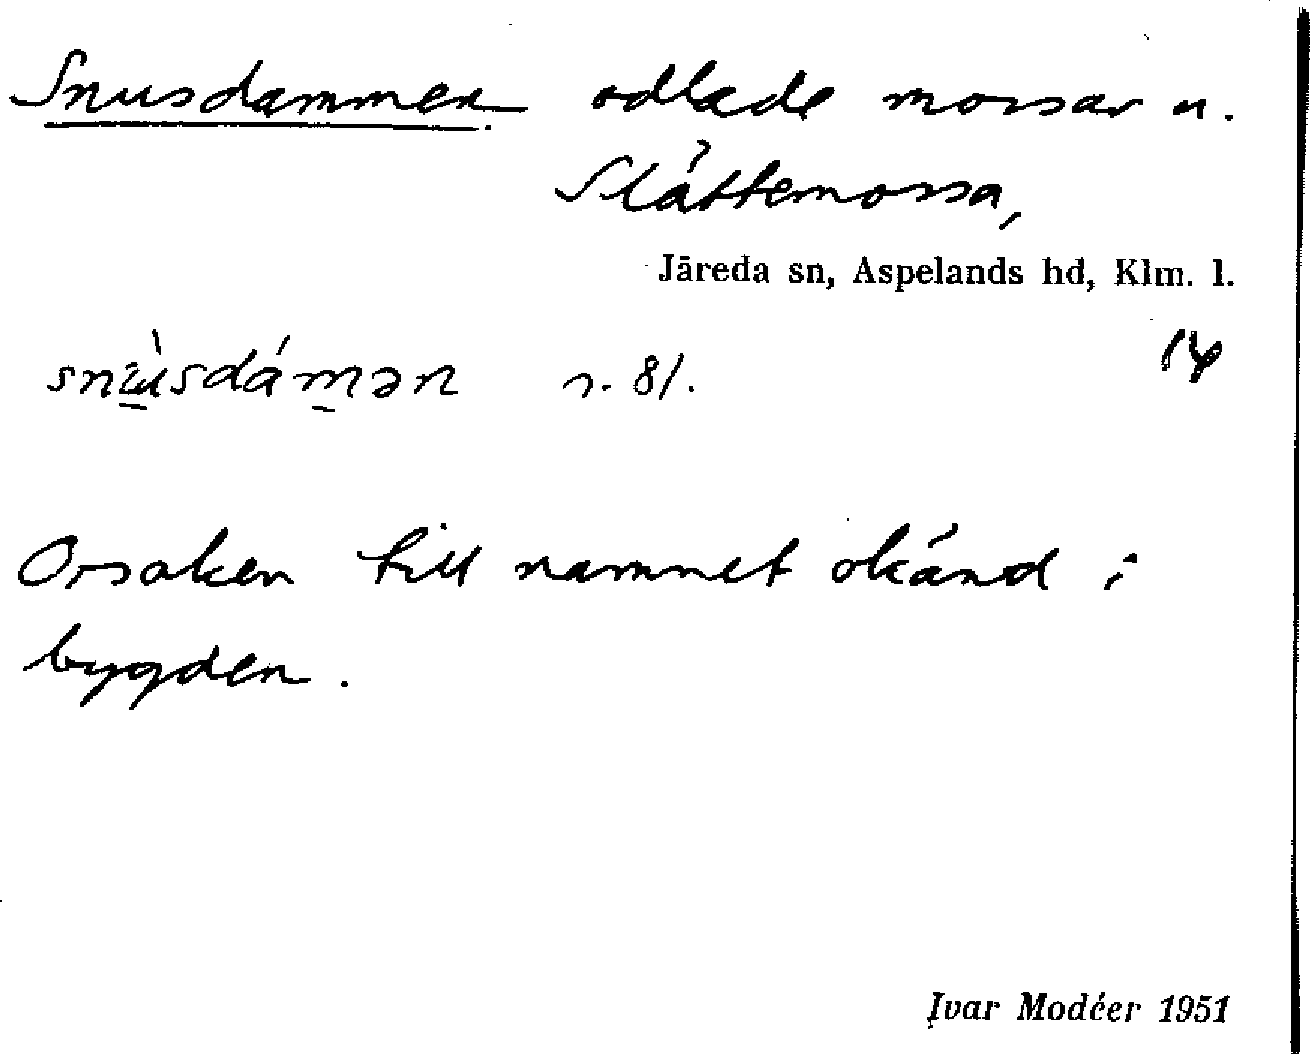 Snusdammen odlade mossar u.
Slåttemossa,
Järeda sn, Aspelands hd, Klm. l.
snʉ̀sdámən r. 81.
Orsaken till namnet okänd i
bygden.
Ivar Modéer 1951